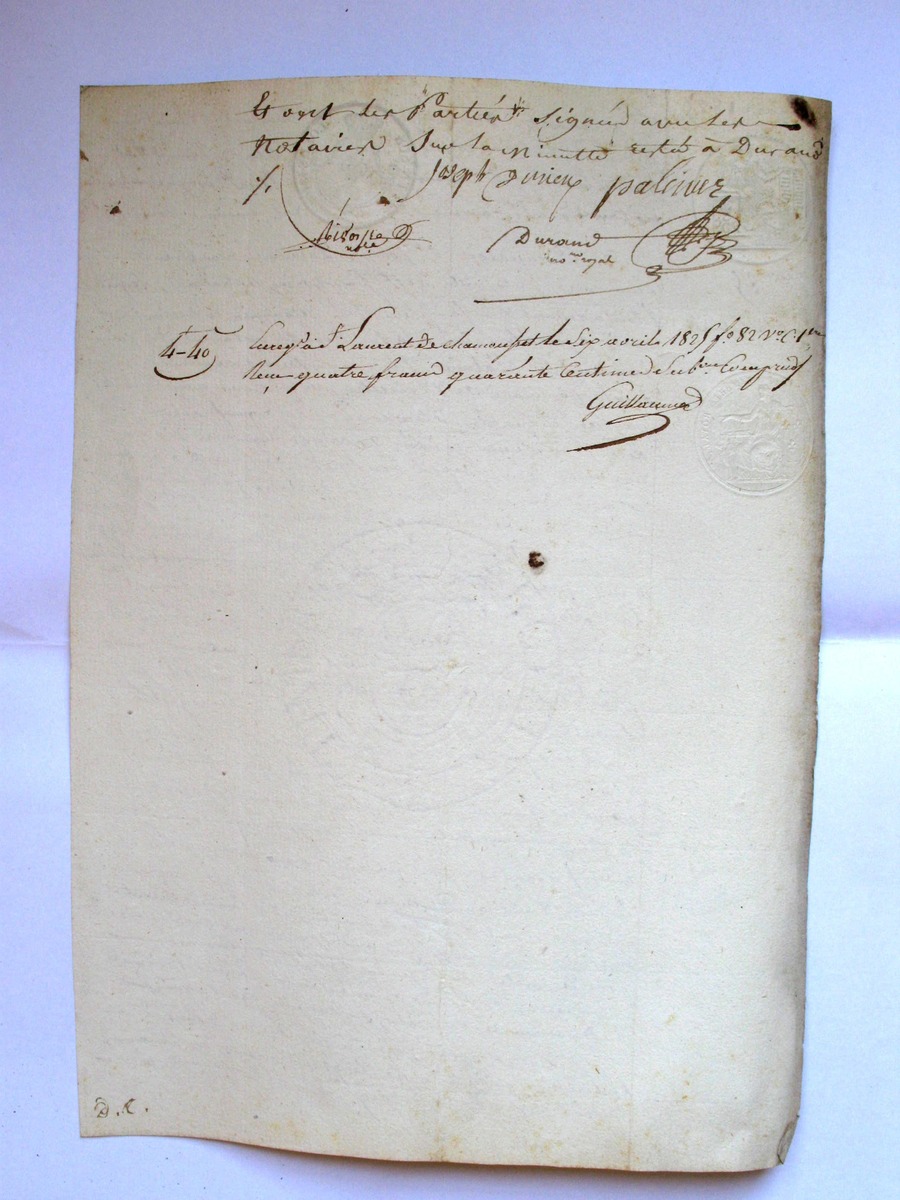 Et ont les Parties signé avec les
Notaires Sur la Minutte restée à Durand
Joseph Durieu palciuez
Durand
no.re royal
4-40 Enreg.é à S.t Laurent de chamousset le Six avril 1825 f.o 82 V.o C. 1.re
Reçu quatre francs quarante Centimes Sub.on Compris
Guillaume
D. C.